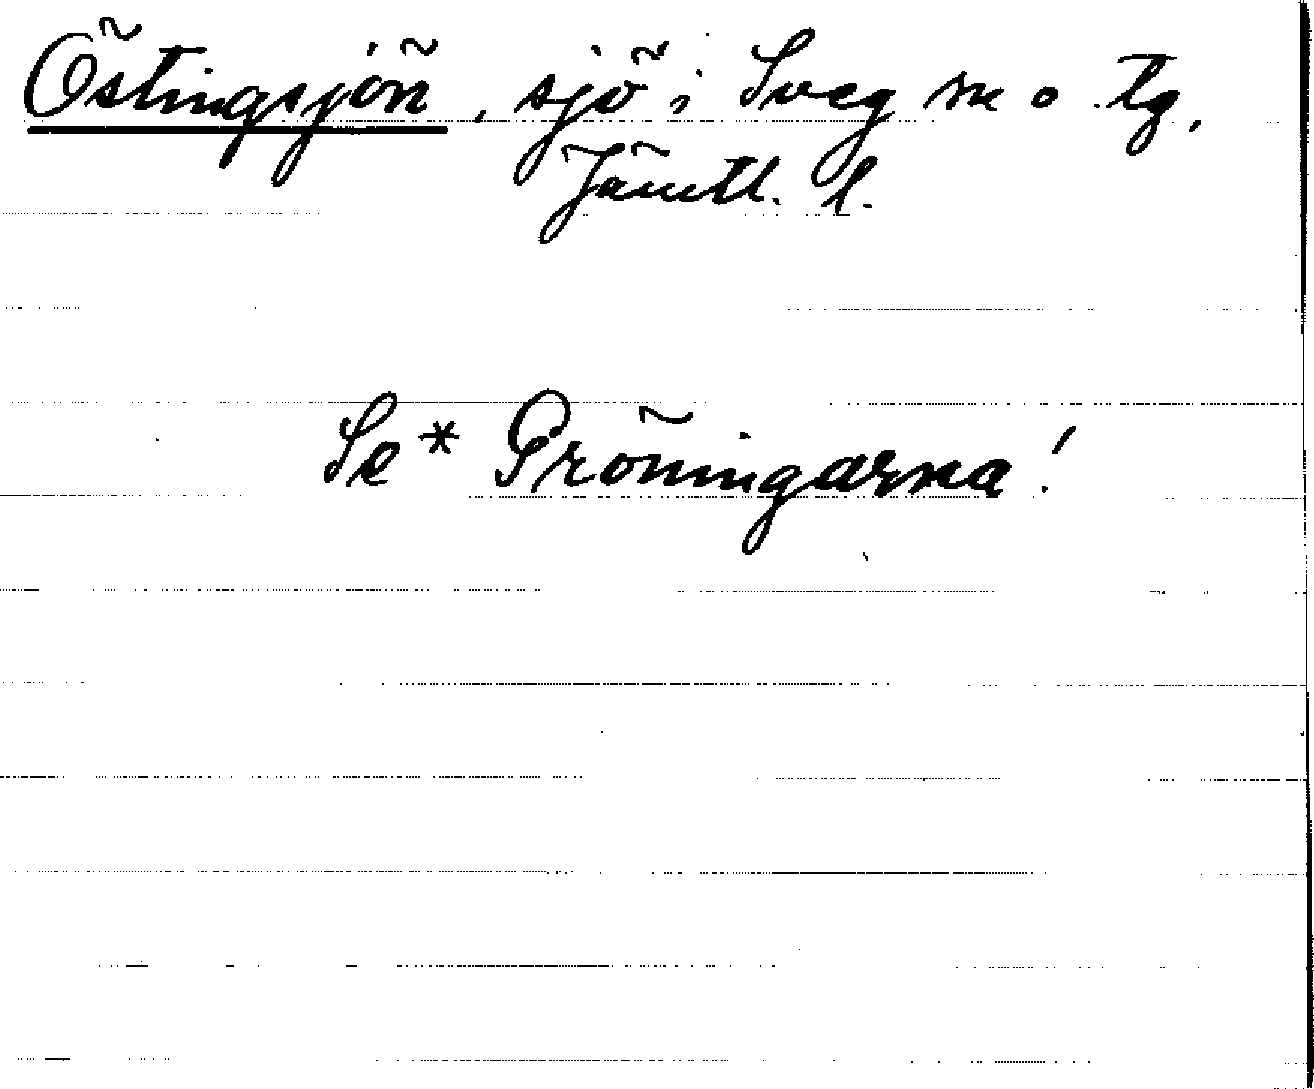 Östingsjön, sjö i Sveg sn o tg,
Jämtl. l.
Se * Pröningarna!